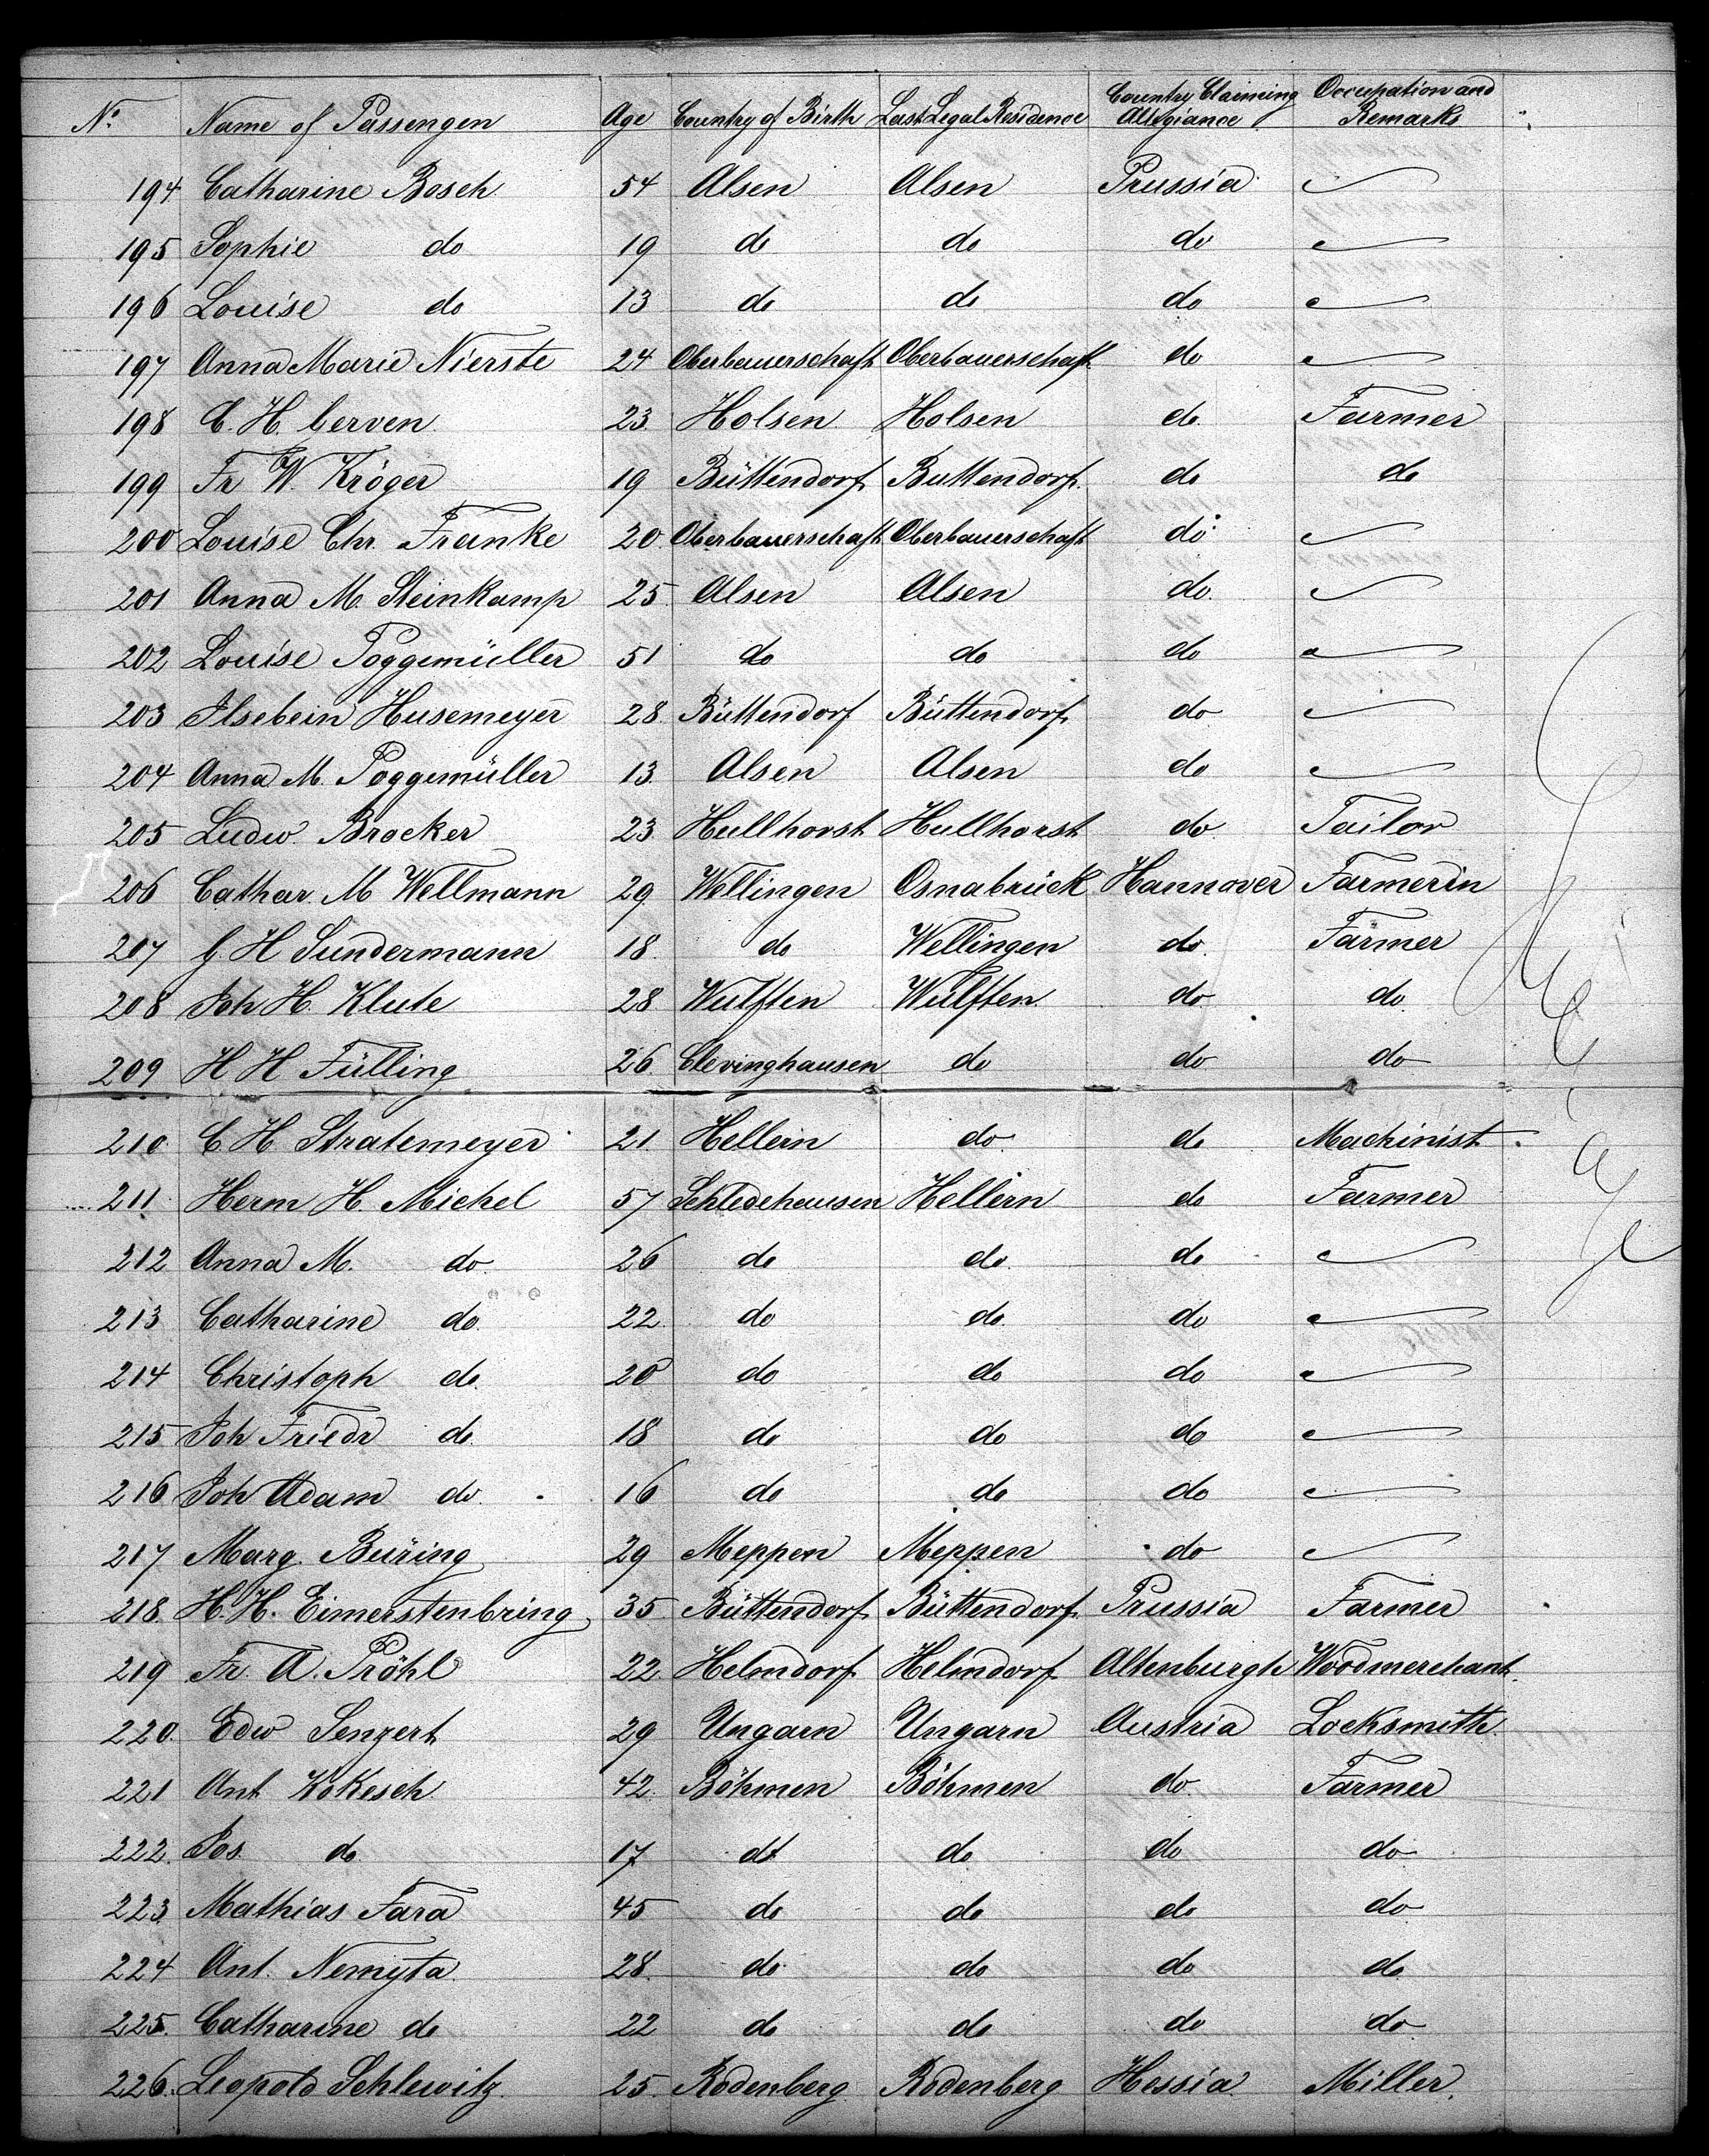 No. Name of Passenger Age Country of Birth Last Legal Residence Country Claiming Allegiance Occupation and Remarks
194 Catharine Bosch 54 Alsen Alsen Prussia —
195 Sophie do 19 do do do —
196 Louise do 13 do do do —
197 Anna Marie Nierste 24 Oberbauerschaft Oberbauerschaft do —
198 C. H. Cerven 23 Holsen Holsen do Farmer
199 Fr W. Kröger 19 Büttendorf Buttendorf do do
200 Louise Chr. Franke 20 Oberbauerschaft Oberbauerschaft do —
201 Anna M. Steinkamp 25 Alsen Alsen do —
202 Louise Poggemüller 51 do do do —
203 Ilsebein Husemeyer 28 Büttendorf Büttendorf do —
204 Anna M. Poggemüller 13 Alsen Alsen do —
205 Ludw. Brocker 23 Hullhorst Hullhorst do Tailor
206 Cathar. M Wellmann 29 Wellingen Osnabrück Hannover Farmerin
207 G. H Sundermann 18 do Wellingen do Farmer
208 Joh H. Klute 28 Wulften Wulften do do
209 H H Fülling 26 Clevinghausen do do do
210 C. H Stratemeyer 21 Hellern do do Machinist
211 Herm H. Michel 57 Schledehausen Hellern do Farmer
212 Anna M. do 26 do do do —
213 Catharine do 22 do do do —
214 Christoph do 20 do do do —
215 Joh Friedr do 18 do do do —
216 Joh Adam do 16 do do do —
217 Marg. Buring 29 Meppen Meppen do —
218 H. H. Eimerstenbring 35 Büttendorf Büttendorf Prussia Farmer
219 Fr. A. Pröhl 22 Helmdorf Helmdorf Altenburgh Woodmerchant
220 Edw Senzert 29 Ungarn Ungarn Austria Locksmith
221 Ant Kokesch 42 Böhmen Böhmen do Farmer
222 Jos. do 17 do do do do
223 Mathias Fara 45 do do do do
224 Ant. Nemyta 28 do do do do
225 Catharine do 22 do do do do
226 Leopold Schlewitz 25 Rodenberg Rodenberg Hessia Miller